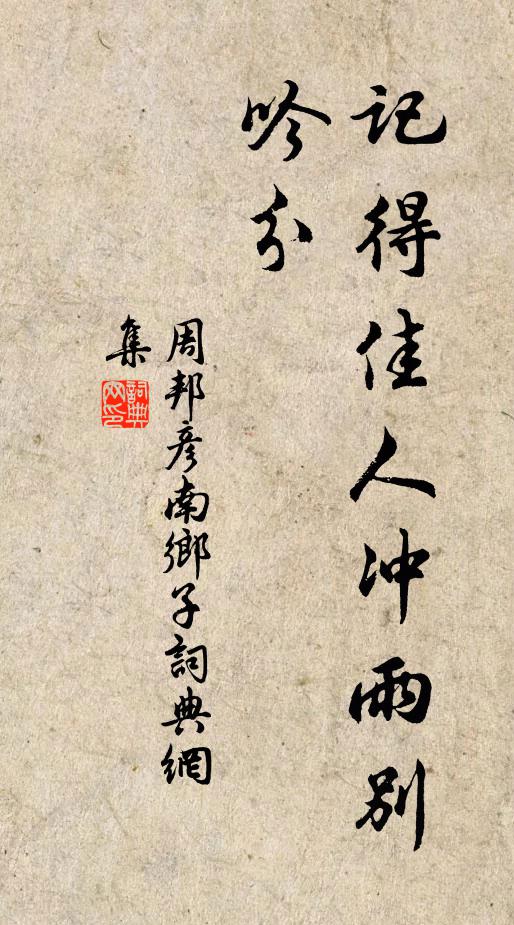 记得佳人冲雨别
吟分
周邦彦南鄉子詞典網
集
詞典
网印